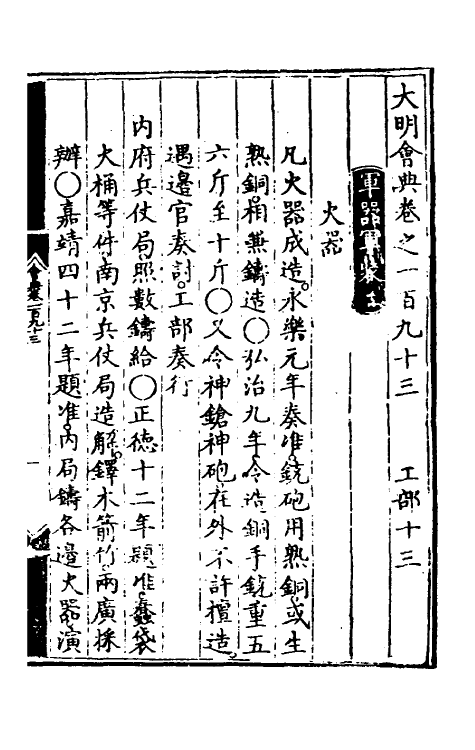 大明會典卷之一百九十三　工部十三
軍器軍裝二
火器
凡火器成造。永樂元年奏准。銃砲用熟銅或生
熟銅相兼鑄造○弘治九年令造銅手銃重五
六斤至十斤○又令神鎗神砲在外不許擅造。
遇邊官奏討。工部奏行
內府兵仗局照數鑄給○正德十二年題准。蠱袋
火桶等件。南京兵仗局造解。鐸木箭竹。兩廣採
辦○嘉靖四十二年題准。內局鑄各邊火器。演
會典卷一百九十三
一